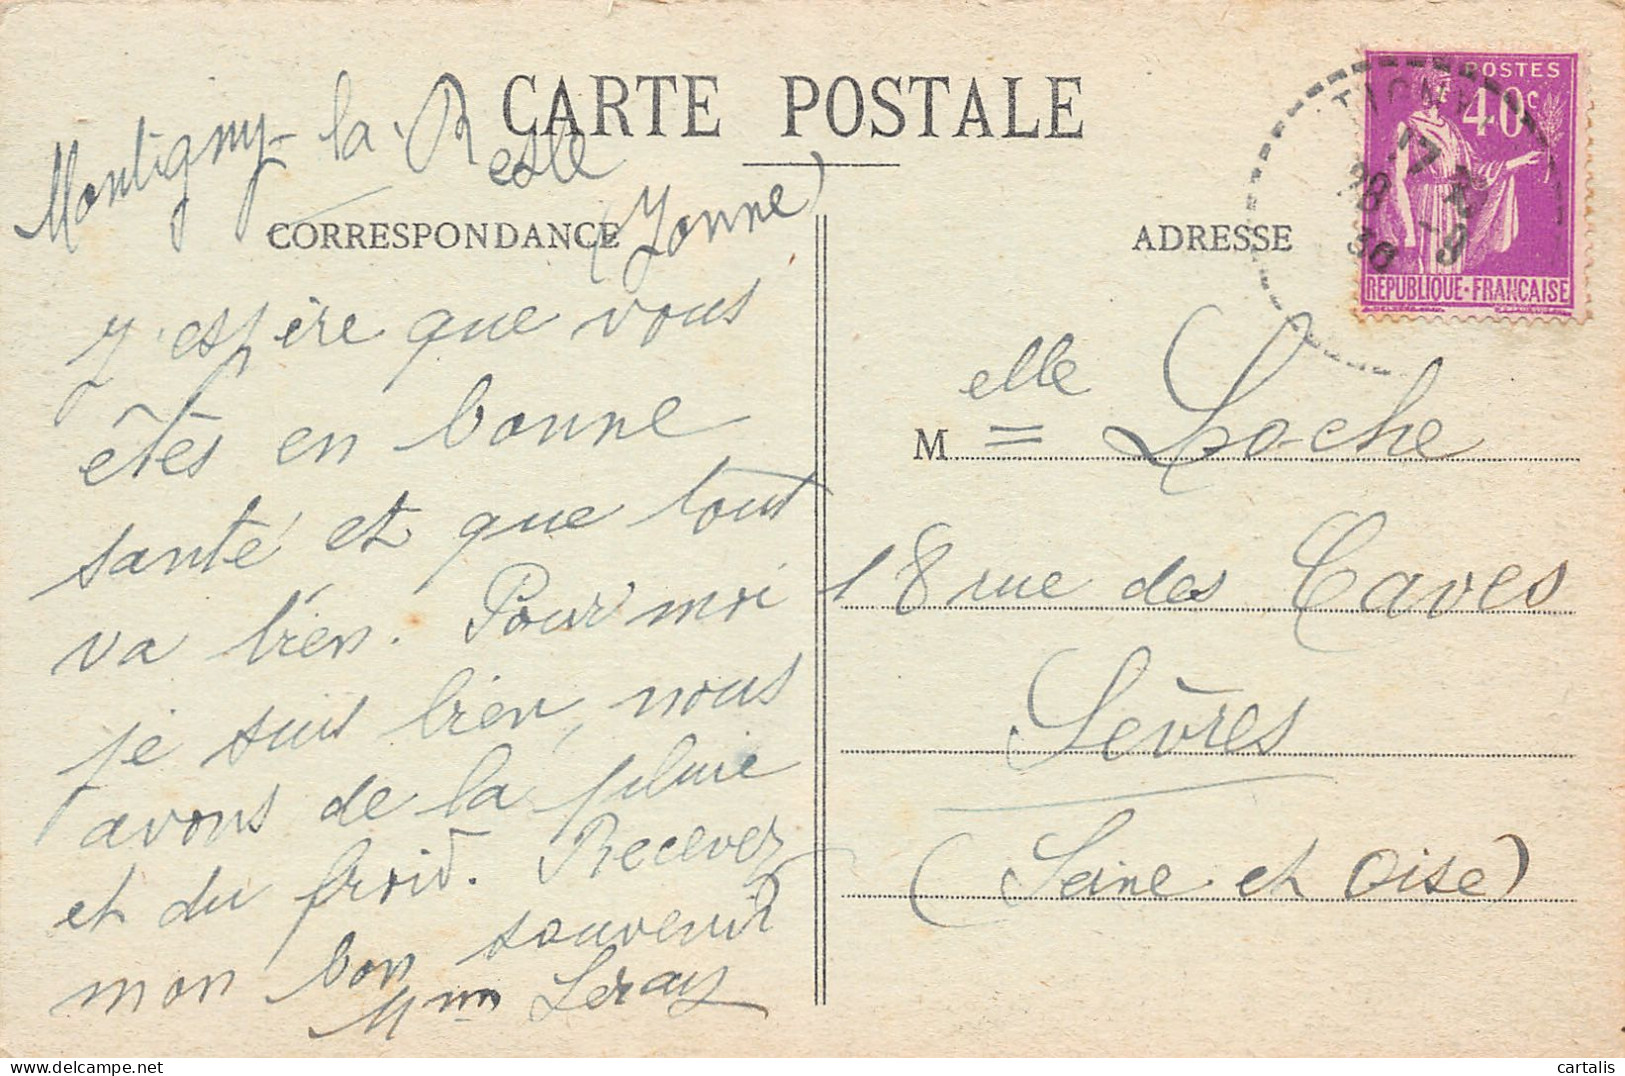 CARTE POSTALE
Montigny-la-Resle
(Yonne)
CORRESPONDANCE
J'espère que vous
êtes en bonne
santé et que tout
va bien. Pour moi
je suis bien, nous
avons de la pluie
et du froid. Recevez
mon bon souvenir
Mme Leray
ADRESSE
POSTES
40c
REPUBLIQUE-FRANCAISE
TIGNY
17
28 -9
36
Melle = Loche
18 rue des Caves
Sèvres
(Seine et Oise)
cartalis